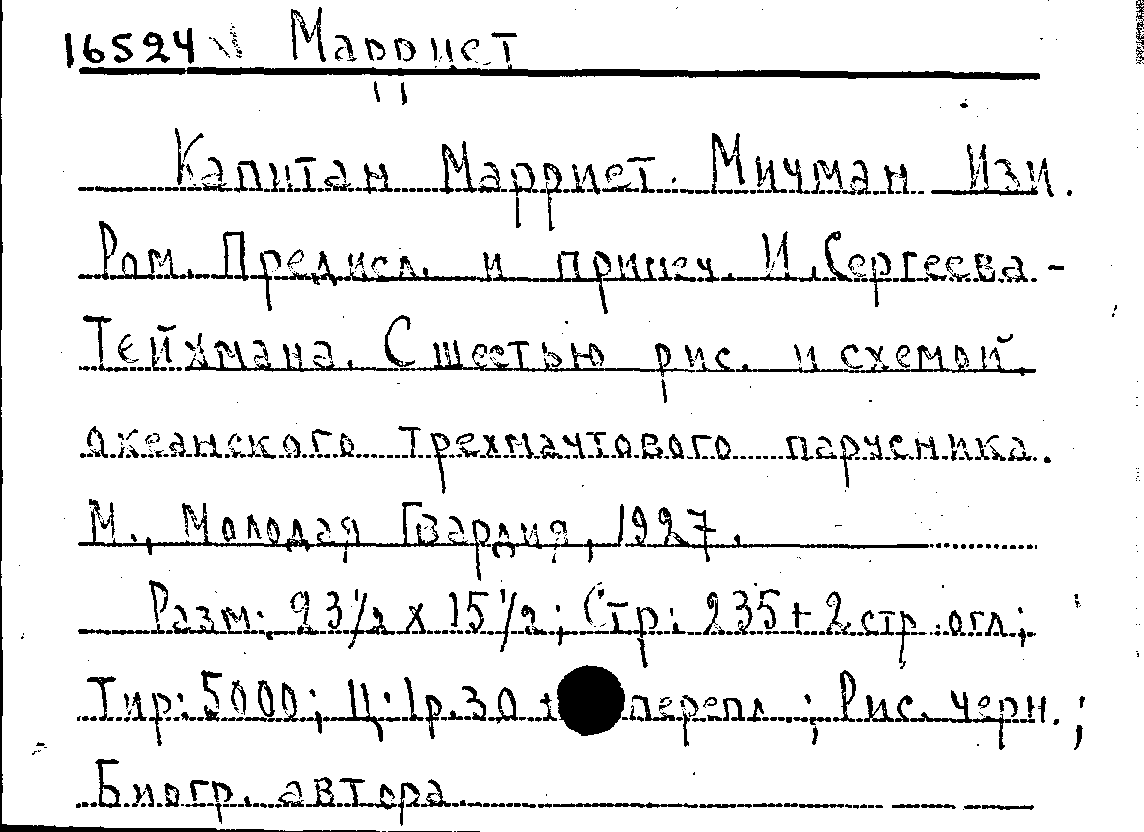 16524 Марриет
Капитан Марриет. Мичман Изи.
Ром. Предисл. и примеч. И. Сергеева-
Тейхмана. С шестью рис. и схемой
океанского трехмачтового парусника.
М., Молодая Гвардия, 1927.
Разм: 23 1/2 х 15 1/2; Стр: 235 + 2 стр. огл;
Тир: 5000; Ц: 1р.30 + перепл.; Рис. черн.;
Биогр. автора